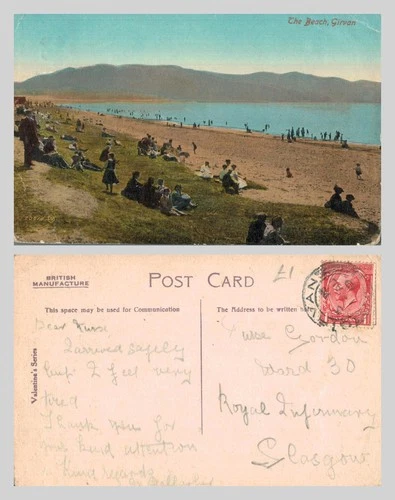 The Beach, Girvan
BRITISH
MANUFACTURE
POST CARD
£1
This space may be used for Communication
The Address to be written
Valentine's Series
Dear Nurse
I arrived safely
but I feel very
tired
Thank you for
your kind attention
Kind regards
Nurse Gordon
Ward 30
Royal Infirmary
Glasgow